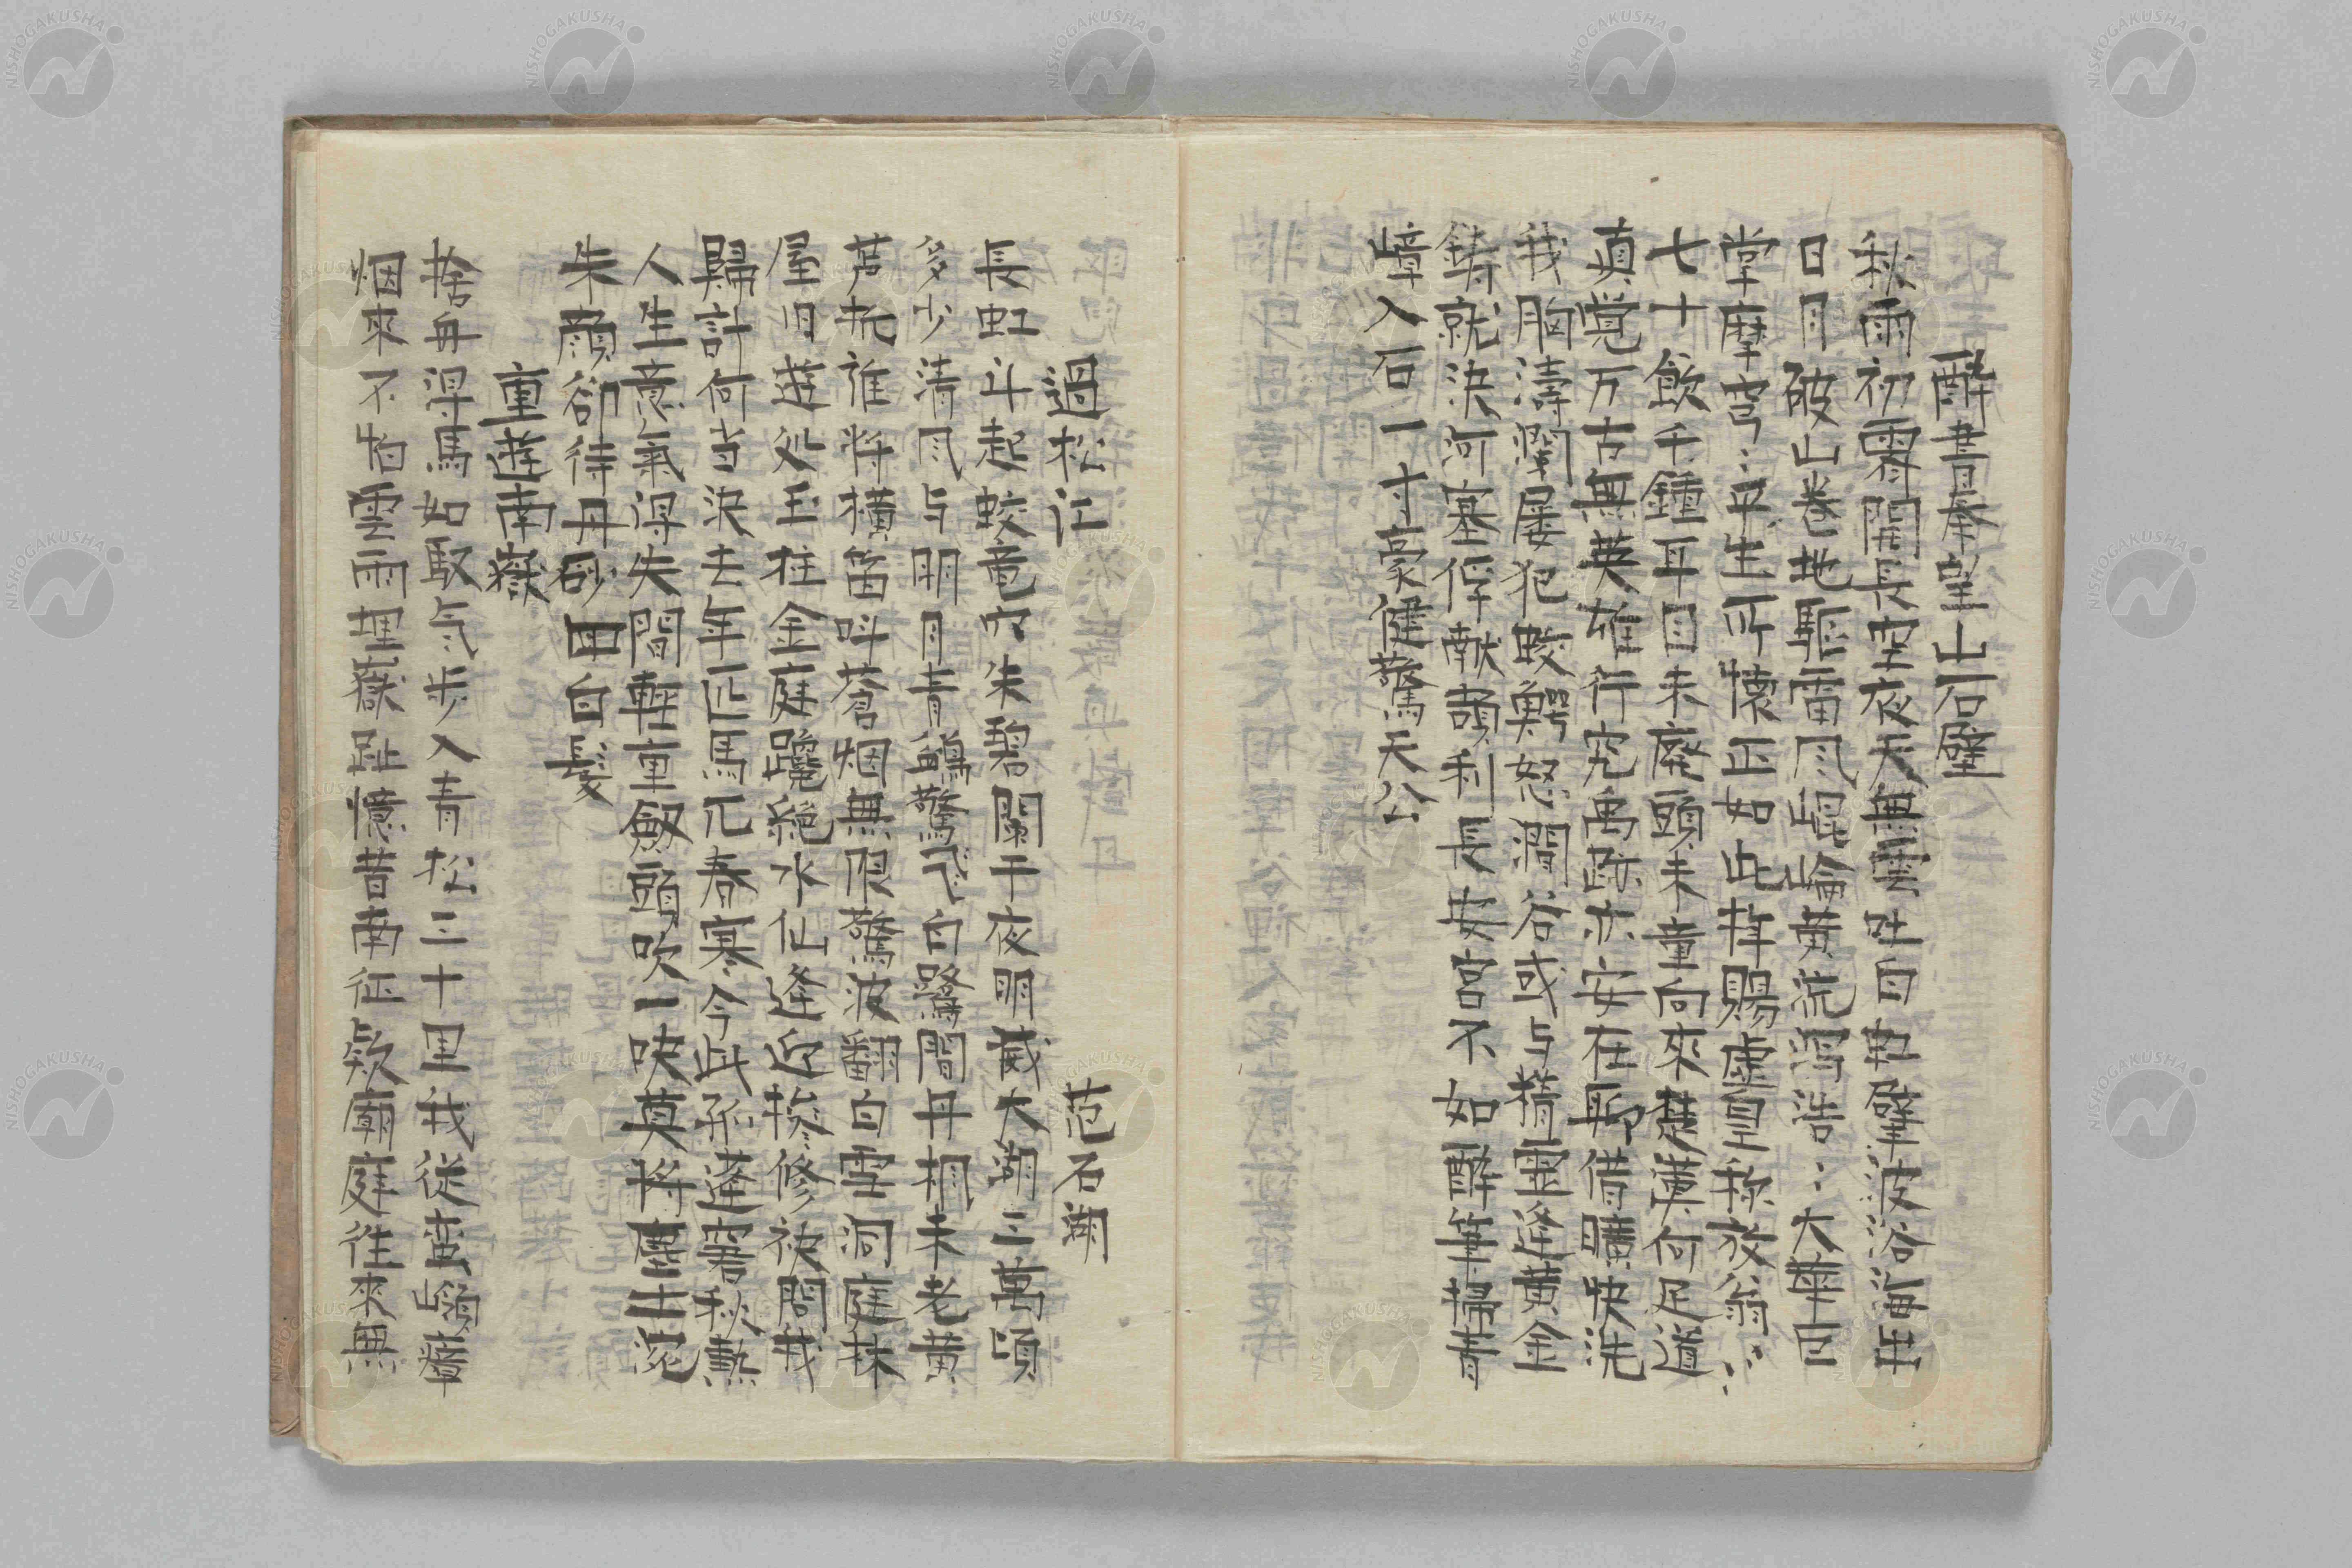 醉書秦望山石壁
秋雨初霽開長空夜天無雲吐白虹擘波浴海出
日月破山巻地驅雷風崑崙黄流瀉浩〻大華巨
掌摩穹〻平生所懐正如此拝賜虚皇称放翁〻〻
七十飲千鍾耳目未廃頭未童向來楚漢何足道
真覚万古無英雄行究禹跡亦安在再借曠快洗
我胸濤瀾屡犯蛟鰐怒澗谷或与精霊逢黄金
鋳就決河塞俘献頡利長安宮不如醉筆掃青
嶂入石一寸豪健驚天公
過松江 范石湖
長虹斗起蛟竜穴朱碧闌干夜明滅太湖三萬頃
多少清風与明月青鷁驚飛白鷺閑丹楓未老黄
芦折誰将横笛叫蒼烟無限驚波翻白雪洞庭林
屋旧遊処玉柱金庭巉絶水仙逢迎修袂問我
歸計何当決去年匹馬兀春寒今此孤蓬窘秋熱
人生意氣得失間軽重劔頭吹一吷莫将塵土涴
朱顔卻待丹砂回白髪
重遊南嶽
捨舟得馬如馭気歩入青松三十里我從蛮嶺瘴
烟來不怕雲雨埋嶽趾憶昔南征款廟庭往來無
NISHOGAKUSHA